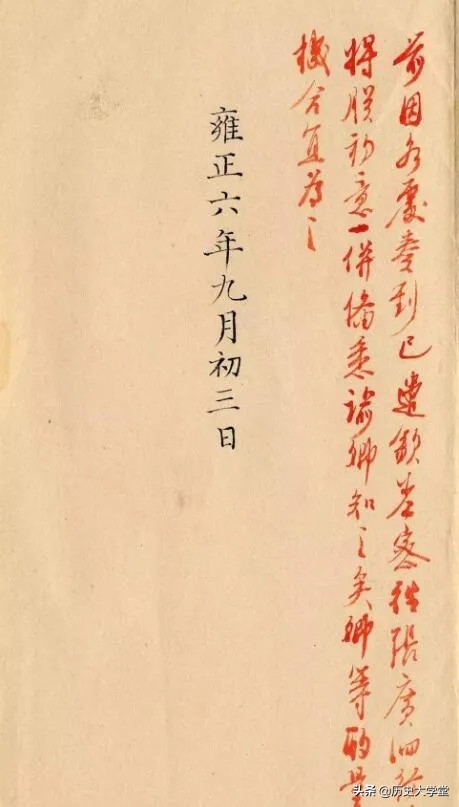 前因各處奏到已遣欽差密往張廣泗
將朕初意一併備悉諭卿知之矣卿等酌量
機合宜為之
雍正六年九月初三日
头条 @历史大学堂